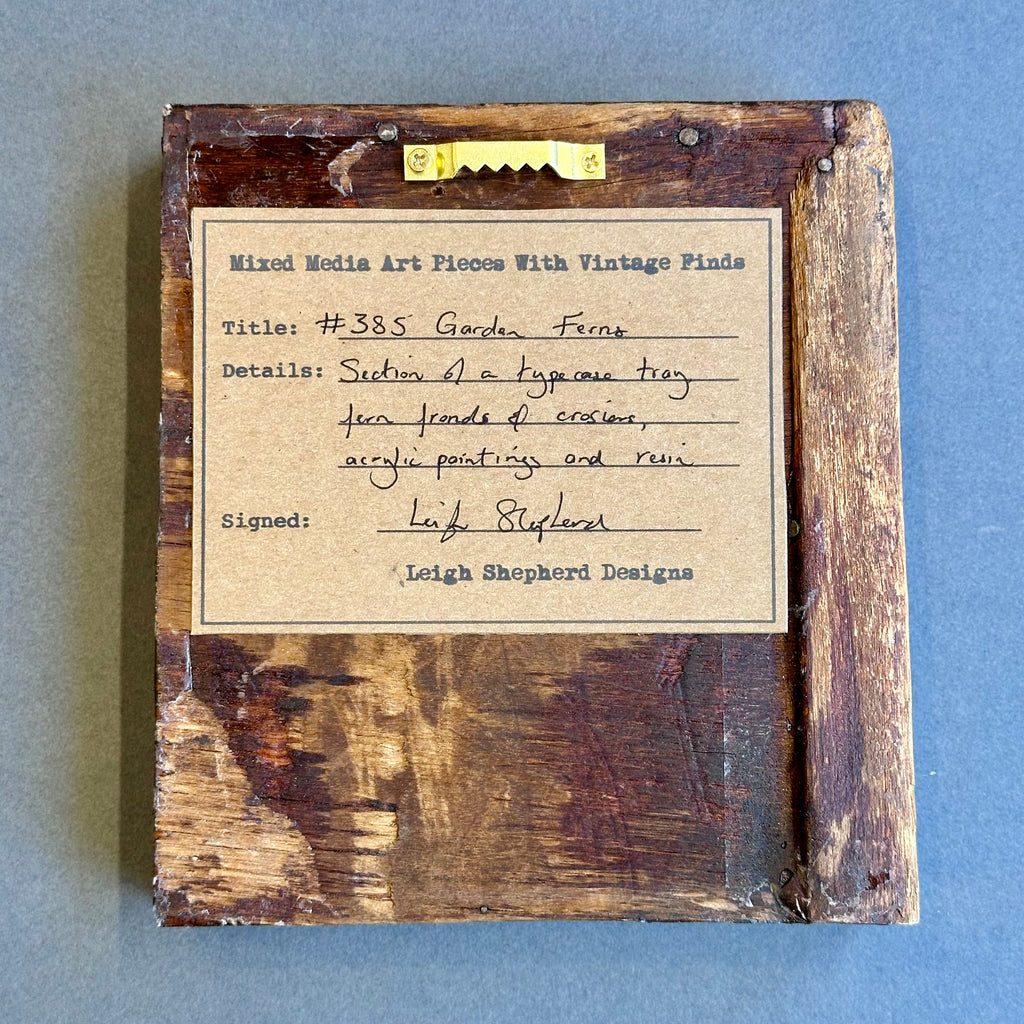 Mixed Media Art Pieces With Vintage Finds
Title: #385 Garden Ferns
Details: Section of a typecase tray
fern fronds & crosiers,
acrylic paintings and resin
Signed: Leigh Shepherd
Leigh Shepherd Designs